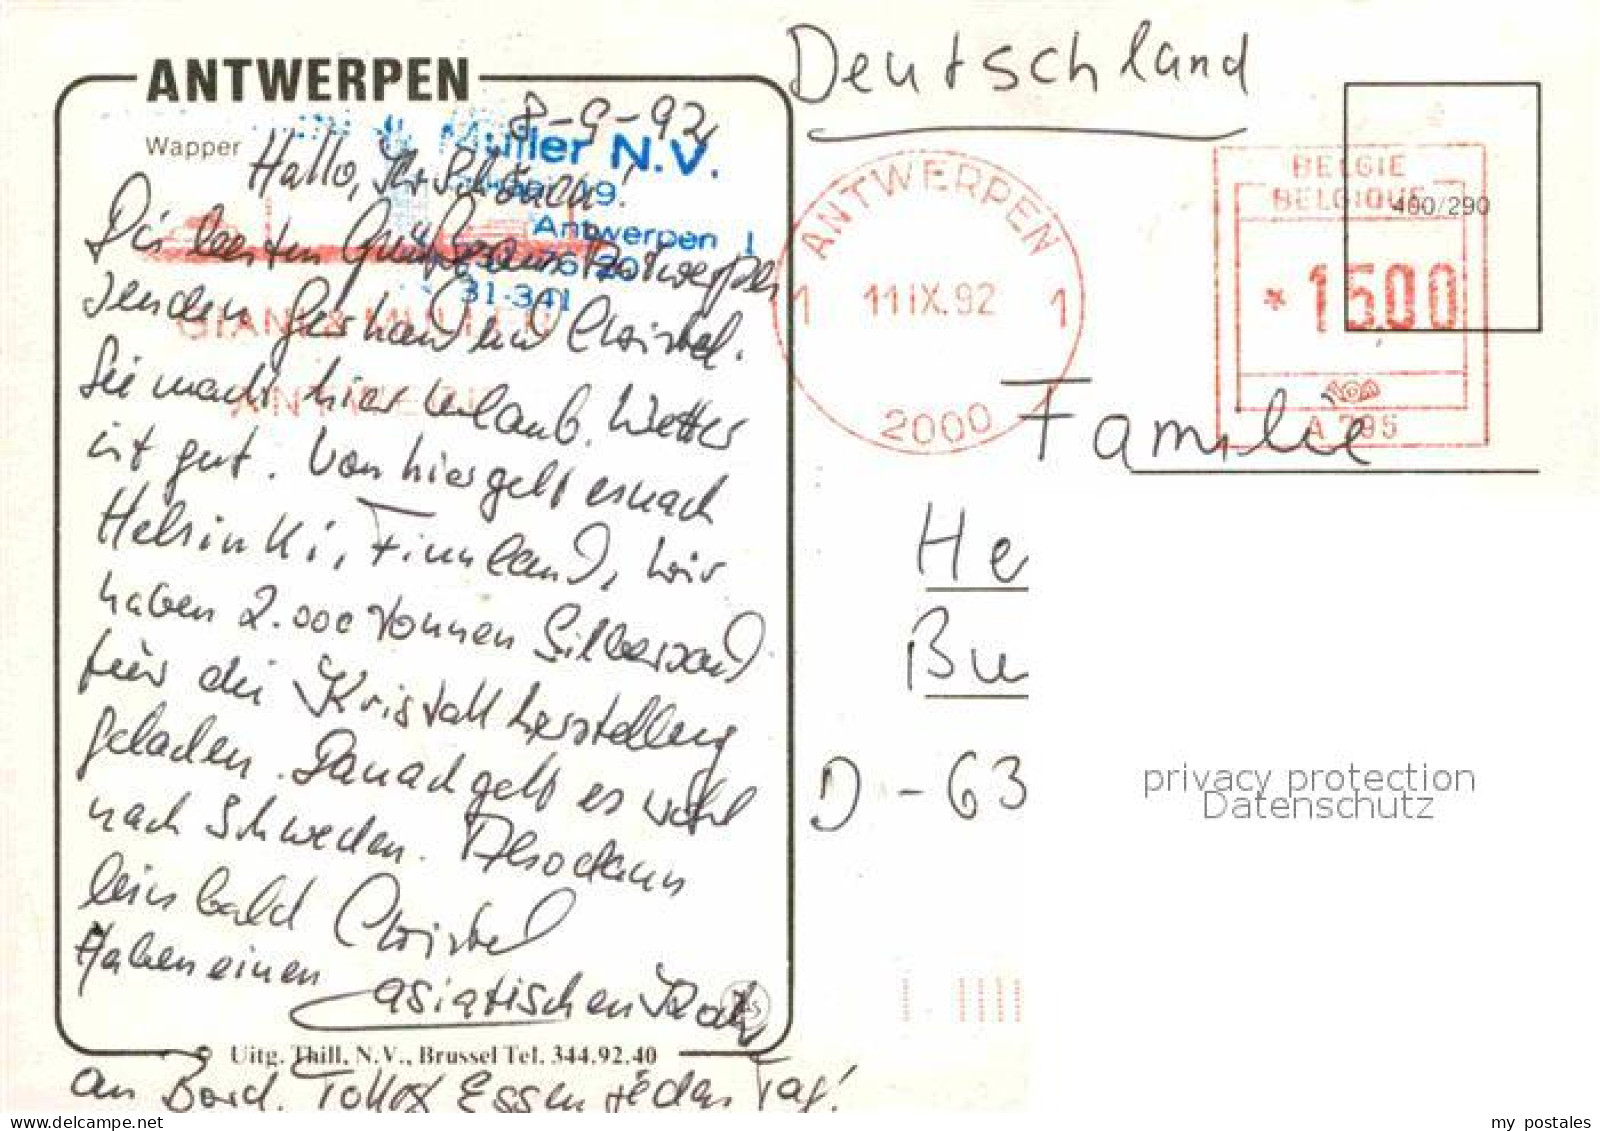 ANTWERPEN
Wapper
8-9-92
Müller N.V.
19
Antwerpen 1
31-341
Hallo, Ihr Schönen!
Die besten Grüße aus Antwerpen
senden Gerhard und Christel.
Sie macht hier Urlaub. Wetter
ist gut. Von hier geht es nach
Helsinki, Finnland, wir
haben 2.000 Tonnen Silbersand
für die Kristallherstellung
geladen. Danach geht es wohl
nach Schweden. Also dann
bis bald Christel
Haben einen
asiatischen Koch
an Bord. Tolles Essen jeden Tag!
Uitg. Thill, N.V., Brussel Tel. 344.92.40
Deutschland
ANTWERPEN
1 11 IX.92 1
2000
BELGIE
BELGIQUE
400/290
* 1500
A 795
Familie
He
Bu
D - 63
privacy protection
Datenschutz
my postales